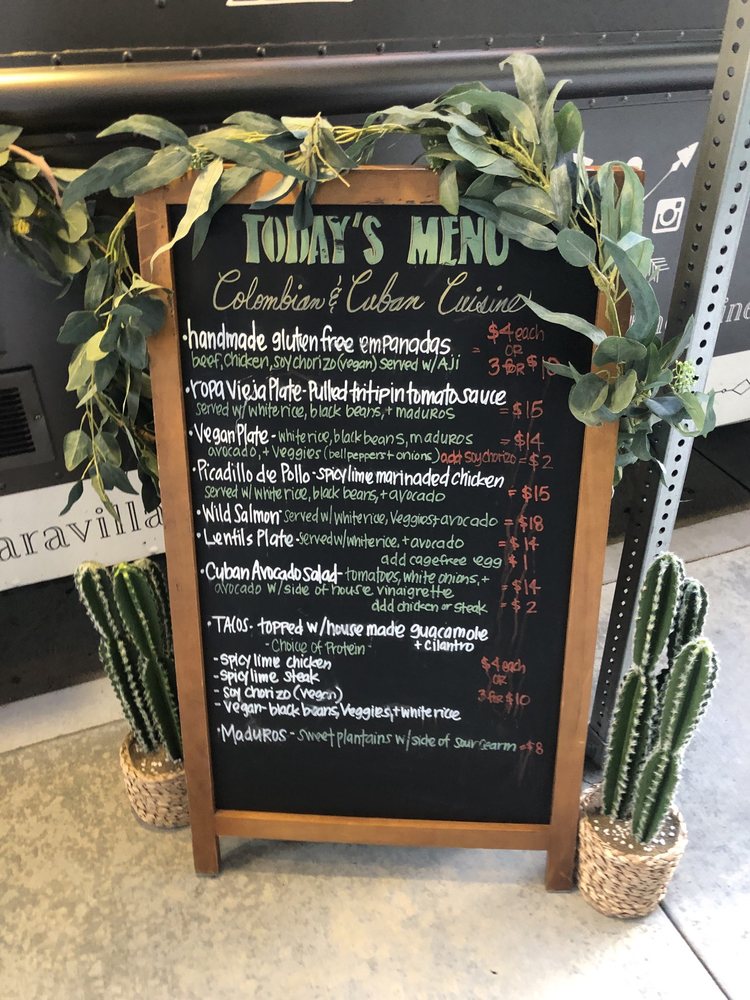 TODAY'S MENU
Colombian & Cuban Cuisine
·handmade gluten free empanadas = $4 each
OR
beef, chicken, soy chorizo (vegan) served w/ Aji 3 FOR $1
·ropa Vieja Plate-Pulled tritip in tomato sauce
served w/ white rice, black beans, + maduros = $15
·Vegan Plate - white rice, black beans, maduros = $14
avocado, + Veggies (bell peppers + onions) add soy chorizo = $2
·Picadillo de Pollo - spicy lime marinaded chicken
served w/ white rice, black beans, + avocado = $15
·Wild Salmon- served w/ white rice, Veggies + avocado = $18
·Lentils Plate - served w/ white rice, + avocado = $14
add cage free egg $1
·Cuban Avocado Salad - tomatoes, white onions, +
avocado w/ side of house vinaigrette = $14
add chicken or steak = $2
·TACOS - topped w/ house made guacamole
- Choice of Protein - + cilantro
- spicy lime chicken $4 each
- spicy lime steak OR
- soy chorizo (vegan) 3 for $10
- Vegan - black beans, Veggies, + white rice
·MADUROS - sweet plantains w/ side of sour cearm = $8
aravilla
ine